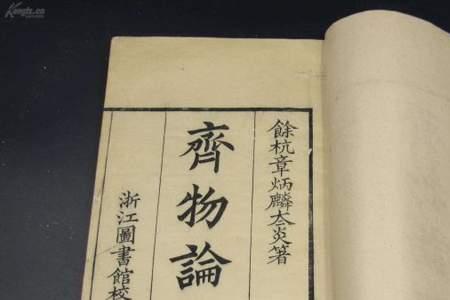 餘杭章炳麟太炎著
齊物論
浙江圖書館校